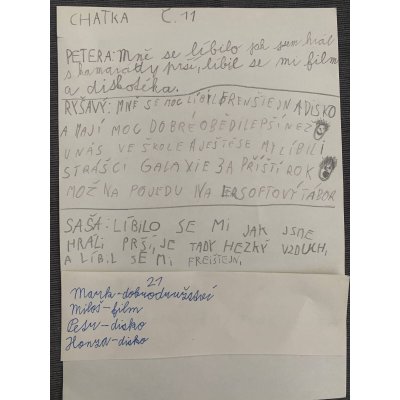 CHATKA Č. 11
PETERA: Mně se líbilo jak sem hrál
s kamarády prší, líbil se mi film
a diskotéka.
RYŠAVÝ: MNĚ SE MOC LÍBYL FRENŠTEJN A DISKO
A MAJÍ MOC DOBRÉ OBĚDI LEPŠÍ NEŽ
U NÁS VE ŠKOLE A JEŠTĚ SE MY LÍBILI
STRÁŠCI GALAXIE ZA PŘÍŠTÍ ROK
MOŽ NA POJEDU NA ERSOFTOVÝ TÁBOR
SAŠA: LÍBILO SE MI JAK JSME
HRÁLI PRŠÍ, JE TADY HEZKÝ VZDUCH,
A LÍBIL SE MI
21
Mark-dobrodružství
Miloš-film
Petr-disko
Honza-disko